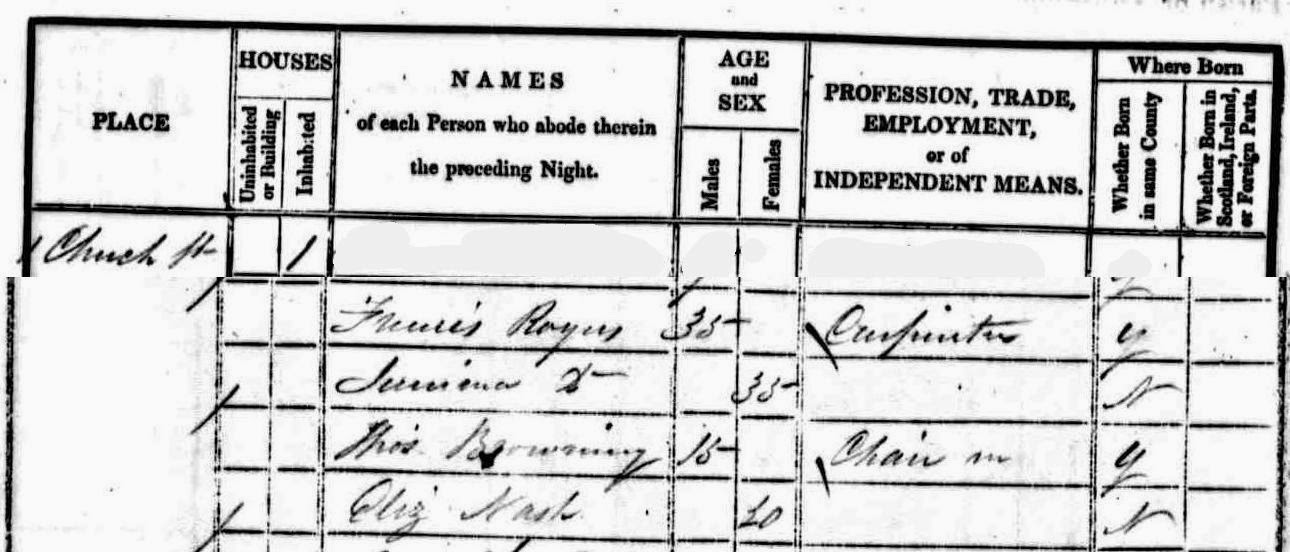 PLACE
HOUSES
Uninhabited or Building
Inhabited
NAMES
of each Person who abode therein
the preceding Night.
AGE
and
SEX
Males
Females
PROFESSION, TRADE,
EMPLOYMENT,
or of
INDEPENDENT MEANS.
Where Born
Whether Born in same County
Whether Born in Scotland, Ireland, or Foreign Parts.
Church St 1
Francis Rogers 35 Carpenter Y
Do 35 N
Thos Browning 15 Chair m Y
Eliz Nash N